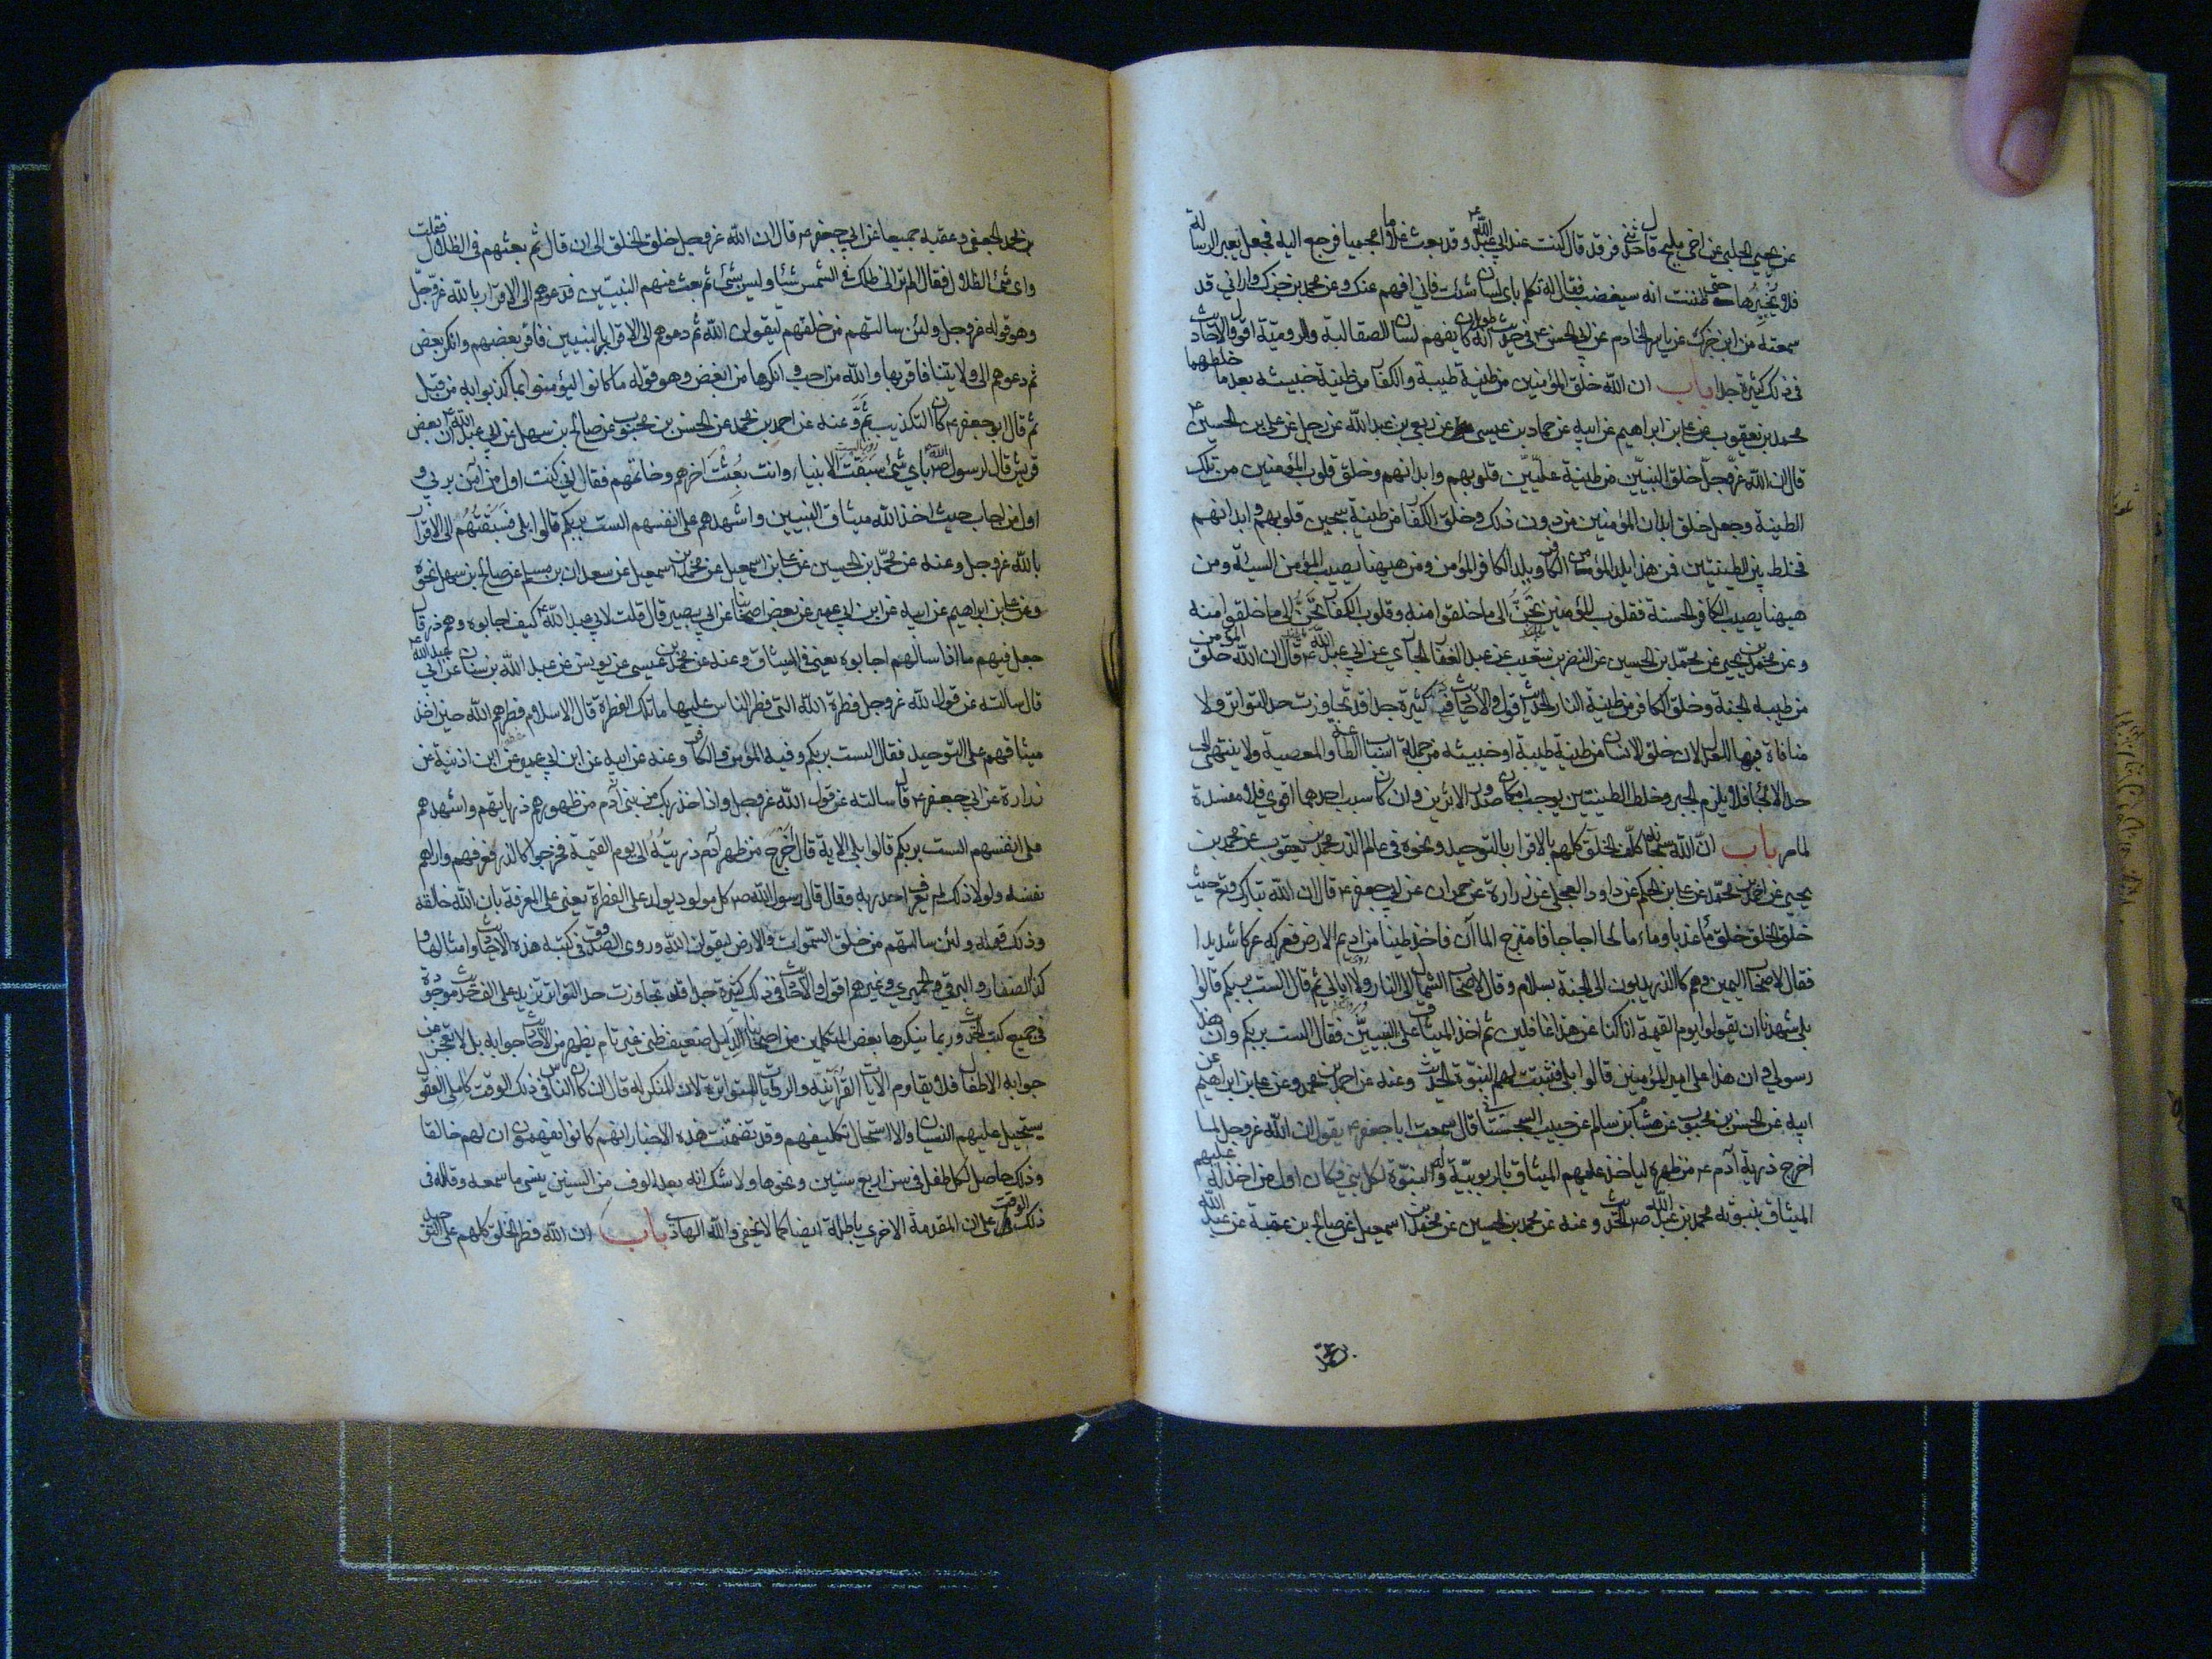 عن يحيى الحلبي عن اخي مليح قال حدثني فرقد قال كنت عند ابي عبد الله ع وقد بعث غلاما اعجميا فرجع اليه فجعل يغير الرسالة
فلا يخبرها حتى ظننت انه سيغضب فقال له تكلم باي لسان شئت فاني افهم عنك وعن محمد بن جزك واراني قد
سمعته من ابن جزك عن ياسر الخادم عن ابي الحسن ع في حديث طويل انه كان يفهم لسان الصقالبة والرومية اقول والاحاديث
في ذلك كثيرة جدا باب ان الله خلق المؤمنين من طينة طيبة والكفار من طينة خبيثة بعد ما خلطهما
محمد بن يعقوب عن علي بن ابراهيم عن ابيه عن حماد بن عيسى عن ربعي بن عبد الله عن رجل عن علي بن الحسين ع
قال ان الله عز وجل خلق النبيين من طينة عليين قلوبهم وابدانهم وخلق قلوب المؤمنين من تلك
الطينة وجعل خلق ابدان المؤمنين من دون ذلك وخلق الكفار من طينة سجين قلوبهم وابدانهم
فخلط بين الطينتين فمن هذا يلد المؤمن الكافر ويلد الكافر المؤمن ومن ههنا يصيب المؤمن السيئة ومن
ههنا يصيب الكافر الحسنة فقلوب المؤمنين تحن الى ما خلقوا منه وقلوب الكفار تحن الى ما خلقوا منه
وعن محمد بن يحيى عن محمد بن الحسين عن النضر بن شعيب عن عبد الغفار الجازي عن ابي عبد الله ع قال ان الله خلق المؤمن
من طينة الجنة وخلق الكافر من طينة النار الحديث اقول والاحاديث فيه كثيرة جدا قد تجاوزت حد التواتر ولا
منافاة فيها للعدل لان خلق الانسان من طينة طيبة او خبيثة من جملة اسباب الطاعة والمعصية ولا ينتهي الى
حد الالجاء فلا يلزم الجبر وخلط الطينتين يوجب امكان صدور الاثرين وان كان سبب احدهما اقوى فلا مفسدة
لما مر باب ان الله سبحانه كلف الخلق كلهم بالاقرار بالتوحيد ونحوه في عالم الذر محمد بن يعقوب عن محمد بن
يحيى عن احمد بن محمد عن علي بن الحكم عن داود العجلي عن زرارة عن حمران عن ابي جعفر ع قال ان الله تبارك وتع حيث
خلق الخلق خلق ماء عذبا وماء مالحا اجاجا فامتزج الماآن فاخذ طينا من اديم الارض فعركه عركا شديدا
فقال لاصحاب اليمين وهم كالذر يدبون الى الجنة بسلام وقال لاصحاب الشمال الى النار ولا ابالي ثم قال الست بربكم قالوا
بلى شهدنا ان تقولوا يوم القيمة انا كنا عن هذا غافلين ثم اخذ الميثاق على النبيين فقال الست بربكم وان هذا
رسولي وان هذا علي امير المؤمنين قالوا بلى فثبتت لهم النبوة الحديث وعنه عن احمد بن محمد وعن علي بن ابراهيم عن
ابيه عن الحسن بن محبوب عن هشام بن سالم عن حبيب السجستاني قال سمعت ابا جعفر ع يقول ان الله عز وجل لما
اخرج ذرية آدم ع من ظهره لياخذ عليهم الميثاق بالربوبية له والنبوة لكل نبي فكان اول من اخذ له عليهم
الميثاق بنبوته محمد بن عبد الله ص الحديث وعنه عن محمد بن الحسين عن محمد بن اسمعيل عن صالح بن عقبة عن عبد الله
بن محمد الجعفي وعقبة جميعا عن ابي جعفر ع قال ان الله عز وجل خلق الخلق الى ان قال ثم بعثهم في الظلال فقلت
واي شئ الظلال فقال الم تر الى ظلك في الشمس شيئا وليس بشئ ثم بعث منهم النبيين فدعوهم الى الاقرار بالله عز وجل
وهو قوله عز وجل ولئن سالتهم من خلقهم ليقولن الله ثم دعوهم الى الاقرار بالنبيين فاقر بعضهم وانكر بعض
ثم دعوهم الى ولايتنا فاقر بها والله من احب وانكرها من ابغض وهو قوله ما كانوا ليؤمنوا بما كذبوا به من قبل
ثم قال ابو جعفر ع كان التكذيب ثم وعنه عن احمد بن محمد عن الحسن بن محبوب عن صالح بن سهل عن ابي عبد الله ع ان بعض
قريش قال لرسول الله ص باي شئ سبقت الانبياء وانت بعثت اخرهم وخاتمهم فقال اني كنت اول من آمن بربي و
اول من اجاب حيث اخذ الله ميثاق النبيين واشهدهم على انفسهم الست بربكم قالوا بلى فسبقتهم الى الاقرار
بالله عز وجل وعنه عن محمد بن الحسين عن علي بن اسمعيل عن محمد بن اسمعيل عن سعدان بن مسلم عن صالح بن سهل نحوه
وعن علي بن ابراهيم عن ابيه عن ابن ابي عمير عن بعض اصحابنا عن ابي بصير قال قلت لابي عبد الله ع كيف اجابوه وهم ذر قال
جعل فيهم ما اذا سالهم اجابوه يعني في الميثاق وعنه عن محمد بن عيسى عن يونس عن عبد الله بن سنان عن ابي عبد الله ع
قال سالته عن قول الله عز وجل فطرة الله التي فطر الناس عليها ما تلك الفطرة قال الاسلام فطرهم الله حين اخذ
ميثاقهم على التوحيد فقال الست بربكم وفيه المؤمن والكافر وعنه عن ابيه عن ابن ابي عمير عن ابن اذينة عن
زرارة عن ابي جعفر ع قال سالته عن قول الله عز وجل واذ اخذ ربك من بني آدم من ظهورهم ذرياتهم واشهدهم
على انفسهم الست بربكم قالوا بلى الاية قال اخرج من ظهر آدم ذريته الى يوم القيمة فخرجوا كالذر فعرفهم واراهم
نفسه ولولا ذلك لم يعرف احد ربه وقال قال رسول الله ص كل مولود يولد على الفطرة يعني على المعرفة بان الله خلقه
وذلك قوله ولئن سالتهم من خلق السموات والارض ليقولن الله وروى الصدوق في كتبه هذه الاحاديث وامثالها و
كذا الصفار والبرقي والحميري وغيرهم اقول والاحاديث في ذلك كثيرة جدا قد تجاوزت حد التواتر تزيد على الف حديث موجودة
في جميع كتب الحديث وربما ينكرها بعض المتكلمين من اصحابنا لدليل ضعيف ظني غير تام يظهر من الاحاديث جوابه بل لا تعجز عن
جوابه الاطفال فلا يقاوم الآيات القرآنية والروايات المتواترة لان المنكر له قال ان كان الناس في ذلك الوقت كاملي العقول
يستحيل عليهم النسيان والا استحال تكليفهم وقد تضمنت هذه الاخبار انهم كانوا يفهمون ان لهم خالقا
وذلك حاصل لكل طفل في سن اربع سنين ونحوها ولا شك انه بعد الوف من السنين ينسى ما سمعه وقاله في
ذلك الوقت على ان المقدمة الاخرى باطلة ايضا كما لا يخفى والله الهادي باب ان الله فطر الخلق كلهم على التوحيد